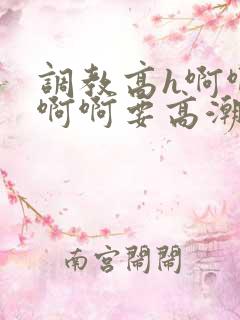 調教高h啊啊
啊啊要高潮
南宮鬧鬧